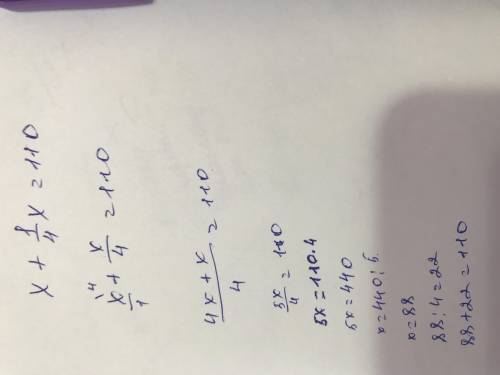 x + 1/4 x = 110
x/1 \4 + x/4 = 110
4x + x / 4 = 110
5x/4 = 110
5x = 110 . 4
5x = 440
x = 440 : 5
x = 88
88 : 4 = 22
88 + 22 = 110